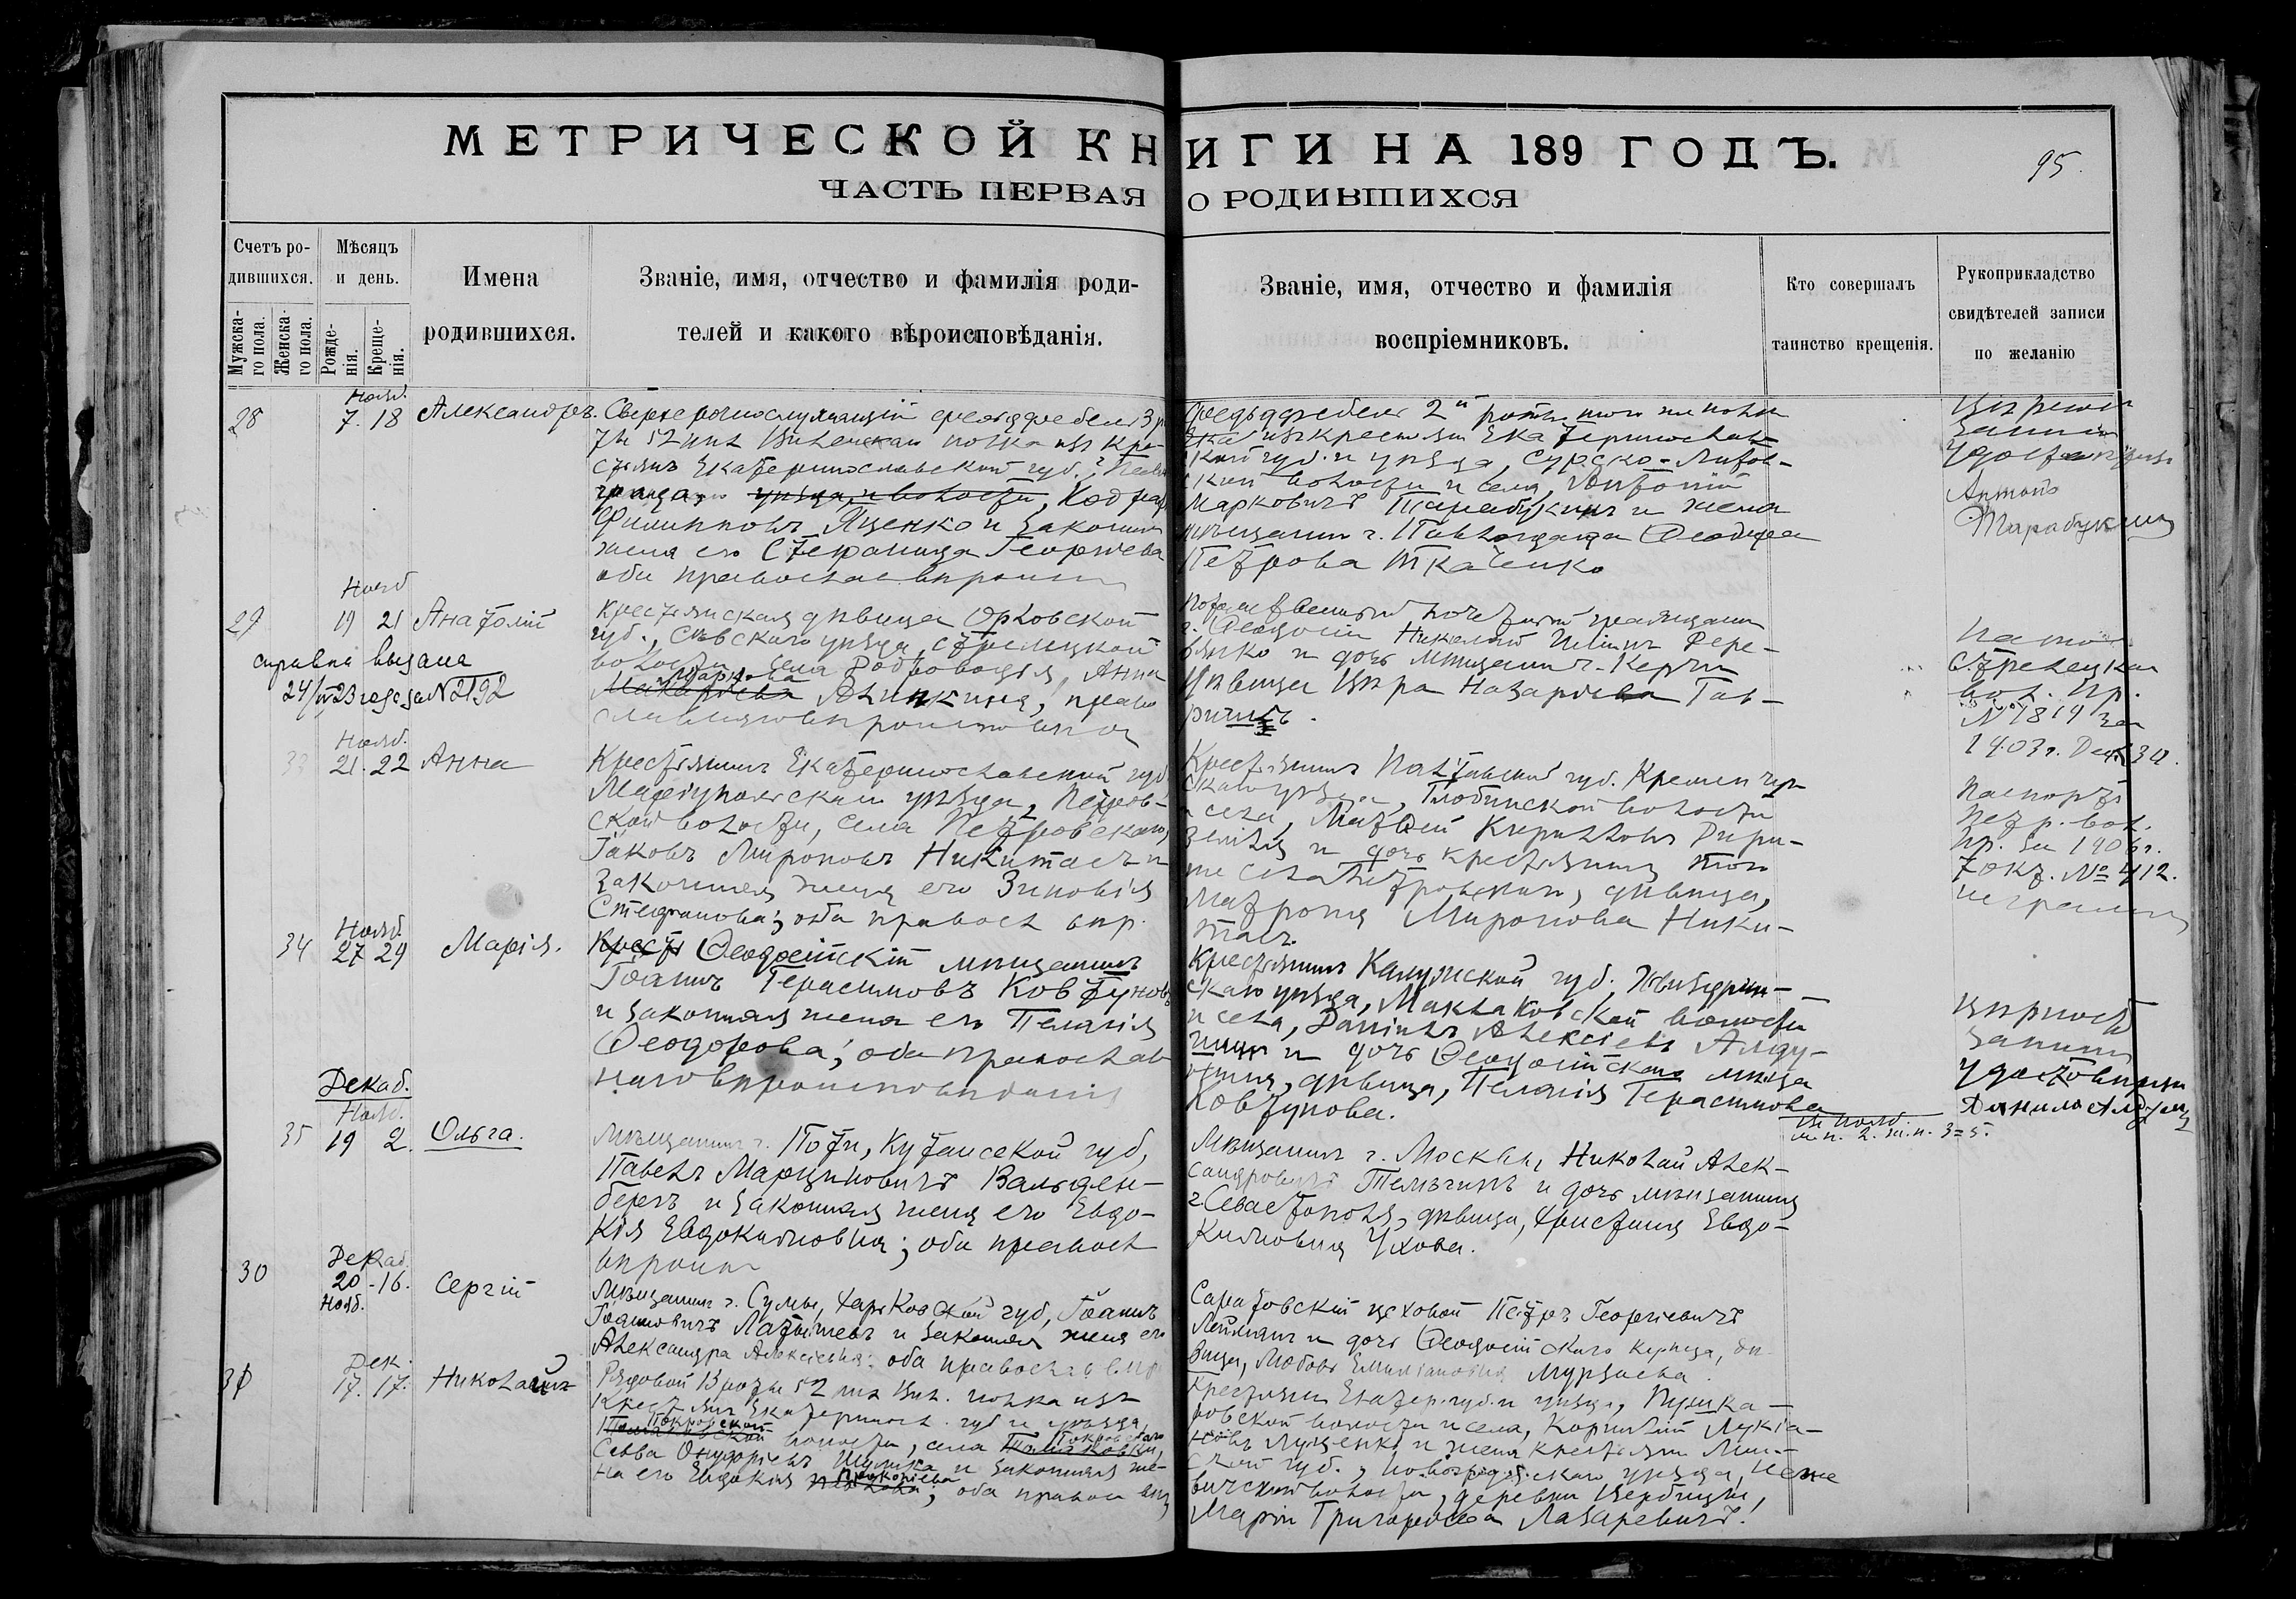 МЕТРИЧЕСКОЙ КНИГИ НА 189 ГОДЪ.
95.
ЧАСТЬ ПЕРВАЯ О РОДИВШИХСЯ
Счетъ родившихся.
Мужскаго пола.
Женскаго пола.
Мѣсяцъ и день.
Рожденія.
Крещенія.
Имена родившихся.
Званіе, имя, отчество и фамилія родителей и какого вѣроисповѣданія.
Званіе, имя, отчество и фамилія воспріемниковъ.
Кто совершалъ таинство крещенія.
Рукоприкладство свидѣтелей записи по желанію
28
Нояб.
7. 18
Александръ.
Сверхсрочнослужащій фельдфебель 3 р
ты 52 пѣх. Виленскаго полка изъ кре-
стьянъ Екатеринославской губ.,
уѣзда, и волости,
Филипповъ Яценко и законная
жена его Стефанида Георгіева
оба православн
фельдфебель 2й роты того же полка
изъ крестьян Екатеринослав-
ской губ. и уѣзда, Сурско-Литов-
ской волости и села, Антоній
Марковичъ Тарабукинъ и жена
мѣщанина г. Павлограда Ѳеодора
Петрова Ткаченко
записи
Антонъ
Тарабукинъ
29
Нояб
19 21
Анатолій
Крестьянская дѣвица Орловской
губ., Сѣвскаго уѣзда, Стрелецкой
волости, села Доброводья, Анна
Маркова
Алинкина, право
славнаго вѣроисповѣд
Потомственный почетный гражданин
г. Ѳеодосіи Николай Ильинъ Дере-
бянко и дочь мѣщанина г. Керчи
дѣвица Вѣра Назаріева Гав-
ришъ.
Стрелецкаго
вол. пр.
№ 1814 за
1903 г. Дек. 30.
справка выдана
24/VI 23 года за № 2192
33
Нояб.
21. 22
Анна
Крестьянинъ Екатеринославской губ
Маріупольскаго уѣзда, Петров-
ской волости, села Петровскаго,
Іаковъ Мироновъ Никитасъ и
законная жена его Зиновія
Стефанова; оба правосл. вѣр.
Крестьянинъ Полтавской губ. Кременчуг-
скаго уѣзда, Глобинской волости
и села, Матѳей Кирилловъ
и дочь крестьянина того
же села Петровскаго, дѣвица,
Матрона Миронова Ники-
тасъ.
Паспортъ
Петр. вол.
пр. за 1906 г.
7 окт. № 412.
неграмотн
34
Нояб.
27 29
Марія.
Крест Ѳеодосійскій мѣщанинъ
Іоаннъ Герасимовъ Ковтуновъ
и законная жена его Пелагія
Ѳеодорова; оба православ
наго вѣроисповѣданія
Крестьянинъ Калужской губ. Жиздрин-
скаго уѣзда, Маклаковской волости
и села, Даніилъ Алексіевъ Алду-
шинъ и дочь Ѳеодосійскаго мѣща
нина, дѣвица, Пелагія Герасимова
Ковтунова.
записи
удостовѣряю
Декаб.
Нояб.
35
19 2.
Ольга.
Мѣщанинъ г. Поти, Кутаисской губ,
Павелъ Марциновичъ Вальден-
бергъ и законная жена его Евдо-
кія Евдокимовна; оба правосл
вѣроисп
м.п. 2. ж.п. 3=5.
Мѣщанинъ г. Москвы, Николай Алек-
сандровичъ Телѣгинъ и дочь мѣщанина
г. Севастополя, дѣвица, Христина Евдо-
кимовна Ухова.
30
Декаб.
20 - 16.
Нояб.
Сергій
Мѣщанинъ г. Сумы, Харьковской губ, Іоаннъ
Іоанновичъ Латышевъ и законная жена его
Александра Алексіевна; оба православ вѣр
Саратовскій цеховой Петръ Георгіевичъ
и дочь Ѳеодосійскаго купца, дѣ
вица, Любовь Емиліановна Мурзаева.
31
Дек.
17. 17.
Николай
Рядовой 13 роты 52 пѣх. Вил. полка изъ
крестьянъ Екатеринос. губ и уѣзда,
Покровской
волости, села Покровскаго
Савва Онуфріевъ Шушка и законная же-
на его Евдокія Прокопіева; оба правосл вѣр
Крестьянин Екатер. губ. и уѣзда, Пушка-
ровской волости и села, Корнилій Лукіа-
новъ Луценко и жена крестьянина Мин-
ской губ., Новогрудскаго уѣзда,
вичской волости, деревни Вербицы,
Марія Григорьева Лазаревичъ.